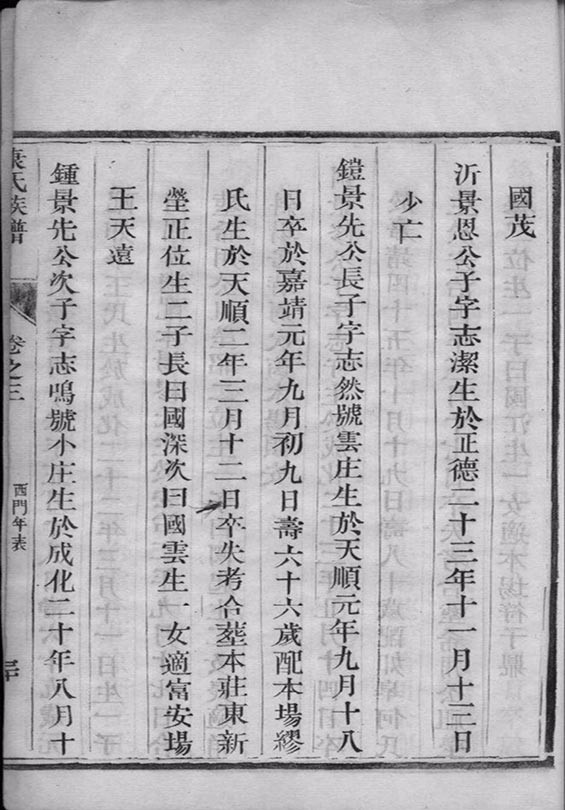 國茂
沂景恩公子字志潔生於正德二十三年十一月十三日
少亡
鎧景先公長子字志然號雲庄生於天順元年九月十八
日卒於嘉靖元年九月初九日壽六十六歲配本場繆
氏生於天順二年三月十二日卒失考合塟本莊東新
塋正位生二子長曰國深次曰國雲生一女適富安場
王天遠
鍾景先公次子字志鳴號小庄生於成化二十年八月十
袁氏族譜
卷之三
西門年表